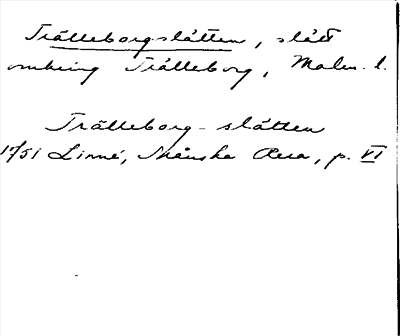 Trälleborgslätten, slätt
omkring Trälleborg, Malm. l.
Trälleborg-slätten
1751 Linné, Skånska Resa, p. VI